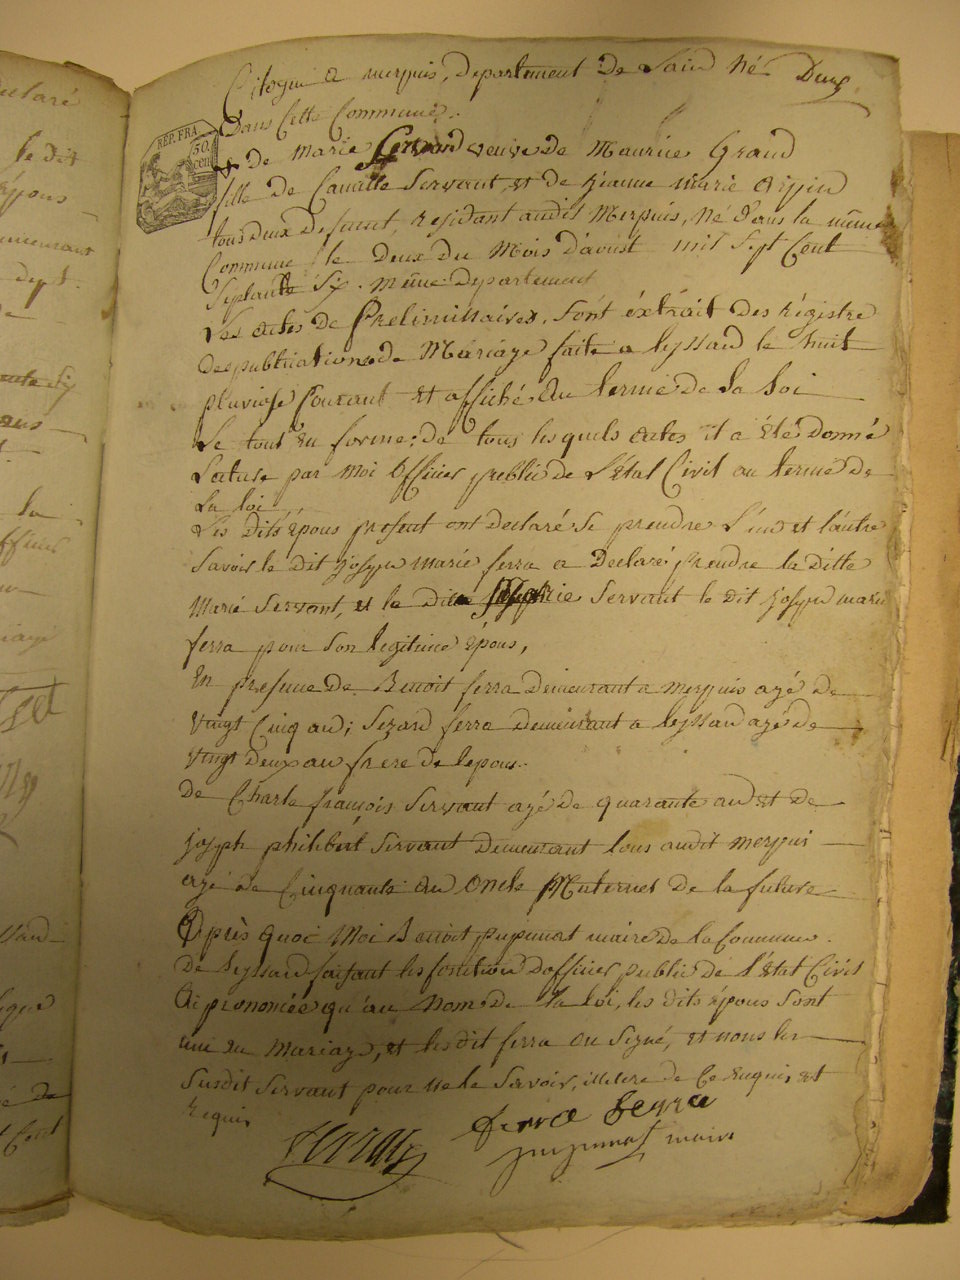 Citoyen a merpuis, departement De Laind Né Dun
Dans Cette Commune.
REP. FRA
50. cen
De Marie Servand veuve De Maurice Grand
fille De Camille Servant, et de jéanne marie
tous deux Defunt, residant audit Merpuis, Né dans la même
Commune le Deux Du Mois Davust mil sept Cent
septante six. même Departement
Les actes De Preliminaires, sont éxtrait Des Régistre
Des publications De Mariage faite a leyssard le huit
pluviose Courant et affiché Au terme De la loi
Le tout en forme: de tous lesquels actes il a été Donné
Lecture par Moi Officier publié de L'état Civil au terme De
La loi
Les Dits époux present ont Declaré se prendre L'un et lautre
savoir le Dit joseph marie ferra a Declaré prendre la Ditte
Marie Servant, et la Dite Servant le dit joseph marie
ferra pour son legitime époux,
En presence De Benoit ferra Demeurant a Merpuis agé De
vingt Cinq an; ferra Demeurant a leyssard agé De
vingt Deux an frere De lepoux.
De Charle françois Servant agé De quarante an et De
joseph philibert Servant Demeurant tous audit merpuis
agé De Cinquante an Oncle Maternel De la future
Après quoi Moi Benoit pupunat maire De la Commune
De leyssard faisant les fonction Dofficier public De l'état Civil
Ai prononcée qu'au Nom De la loi, les dits époux sont
uni en Mariage, et les dit ferra on signé, et nous les
susdit Servant pour ne le savoir, illetere De Ce Enquis et
Requis
ferra ferra
ferra
pupunat maire